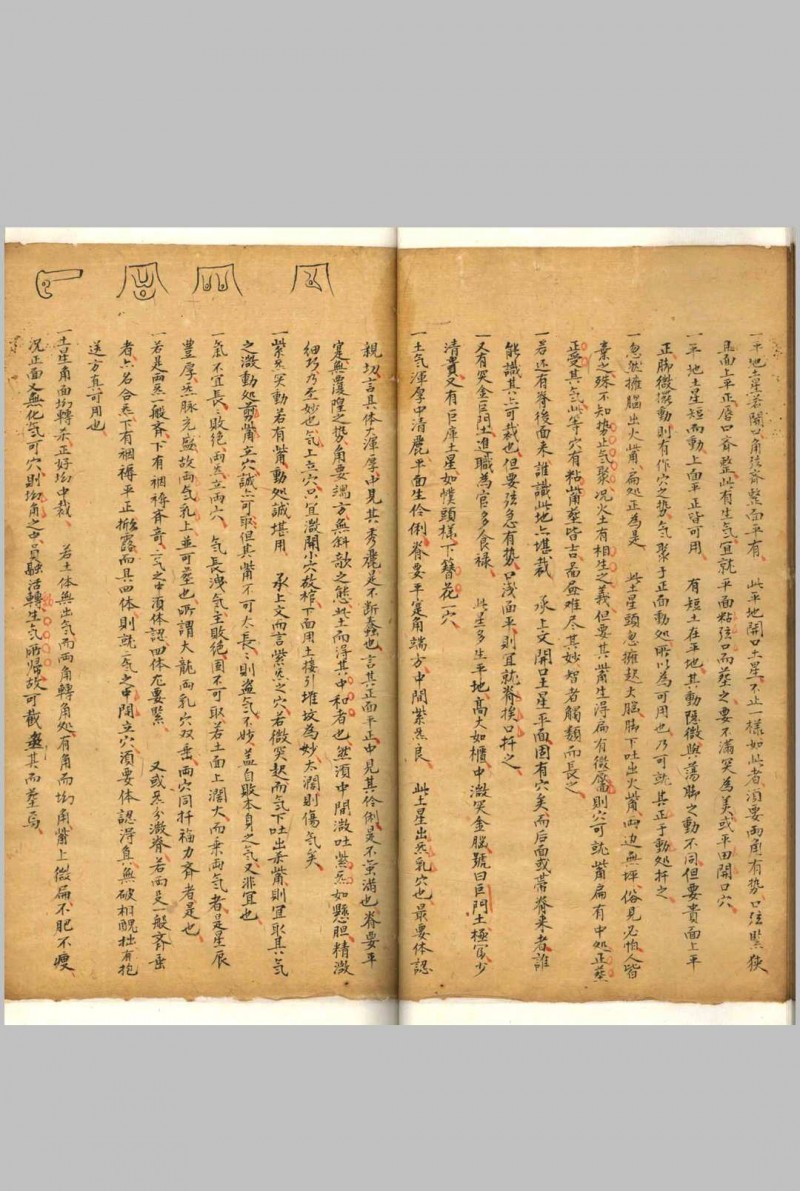 一平地土星若開口角弦齊整面平有 此平地開口土星不止一樣如此者須要兩角有勢口弦緊狹
且面上平正唇口齊整此有生气宜就平面粘弦口而塟之要不滿突為美或平田開口穴
一平地土星短而動上面平正皆可用 有短土在平地其動隱微與蕩脚之動不同但要貴面上平
正脚微㵝動則有作穴之勢气聚于正面動処所以為可用也乃可就其正于動処扦之
一忽然擁腦出火觜扁処正為是 此土星頭忽擁起大腦脚下吐出火觜兩边無坪俗見必怕人皆
棄之殊不知勢止气聚况火土有相生之義但要其觜生得扁有微靨則穴可就觜扁有中処正塟
正受其气此等穴有粘觜塟皆吉啚無难尽其妙智者觸類而長之
一若还有脊後面来誰識此地上堪裁 承上文開口土星平面固有穴矣而后面或帯脊来者誰
能識其上可裁也但要弦急有勢口浅面平則宜就脊挨口扦之
一又有突金巨門土進職為官多食禄 此星多生平地高大如櫃中微突金腦號曰巨門土極富少
清貴又有巨库土星如幞頭様下簪花穴
一土气渾厚中清麗平面生伶俐脊要平寔角端方中間紫炁良 此土星出炁乳穴也最要体認
親切言具体大渾厚中見其秀麗是不断蠢也言其正面平正中見其伶俐是不蛮滿也脊要平
寔無覆隍之势角要端方無斜歆之態此土而得其中和者也然須中開微吐紫炁如懸胆精㵝
細巧乃至妙也气上立穴只宜㵝開小穴放棺下面用土接引堆坟為妙太濶則傷气矣
一紫炁突動若有觜動処誠堪用 承上文而言紫炁之穴若微突起而气下吐出垂觜則宜取其气
之㵝動処剪觜立穴誠上可取但其觜不可太長則盗气不妙盖自敗本身之气又非宜也
一氣不宜長敗絶兩炁立兩穴 气長洩气主敗绝固不可取若土面上濶大而乗兩气者是星辰
豊厚炁脉充盛故両气乳上並可塟也所謂大龍兩乳穴双垂兩穴同扦福力斉者是也
一若是兩炁一般斉下有裀褥斉竒气之中須体認四体尤要緊 又或炁分㵝脊若兩是一般斉垂
者亦名合炁下有裀褥平正擁露而具四体則就二气之中開立穴須要体認得真無破柤醜拙有抱
送方真可用也
一土星角面拗轉来正好拗中裁 若土体無出气而兩角轉角処有角而拗角觜上微扁不肥不瘦
况正面又無化气可穴則拗角之中員融活轉生气所帰故可截盡其而塟焉